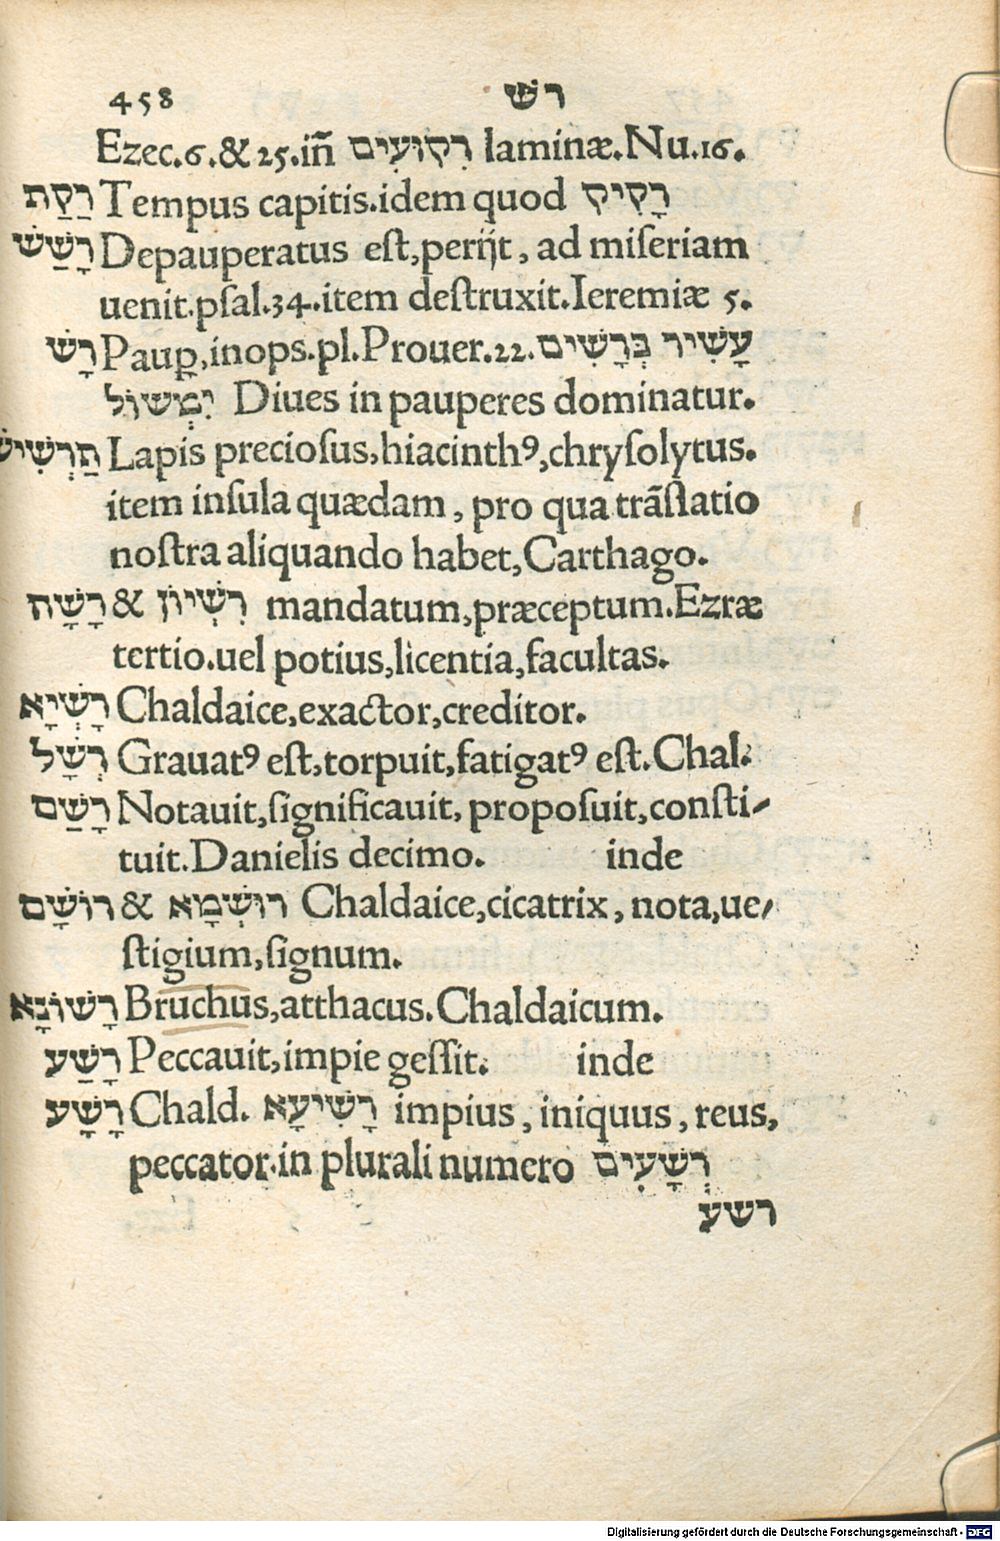 458 רש
Ezec.6.& 25.iñ רִקּוּעִים laminæ.Nu.16.
רַקַת Tempus capitis.idem quod רָקִיק
רָשַׁשׁ Depauperatus est,perijt, ad miſeriam
uenit.pſal.34.item deſtruxit.Ieremiæ 5.
רָשׁ Paup̲,inops.pl.Prouer.22. עָשִׁיר בְּרָשִׁים
יִמְשׁוֹל Diues in pauperes dominatur.
תַּרְשִׁישׁ Lapis precioſus,hiacinthꝰ,chryſolytus.
item inſula quædam, pro qua trāſlatio
noſtra aliquando habet,Carthago.
רָשָׁה & רִשְׁיוֹן mandatum,præceptum.Ezræ
tertio.uel potius,licentia,facultas.
רָשְׁיָא Chaldaice,exactor,creditor.
רְשַׁל Grauatꝰ eſt,torpuit,fatigatꝰ eſt.Chal.
רָשַׁם Notauit,ſignificauit, propoſuit,conſti-
tuit.Danielis decimo. inde
רוֹשָׁם & רוּשְׁמָא Chaldaice,cicatrix, nota,ue-
ſtigium,ſignum.
רָשׁוֹנָא Bruchus,atthacus.Chaldaicum.
רָשַׁע Peccauit,impie geſſit. inde
רָשָׁע Chald. רָשִׁיעָא impius, iniquus, reus,
peccator.in plurali numero רְשָׁעִים
רשע
Digitalisierung gefördert durch die Deutsche Forschungsgemeinschaft - DFG